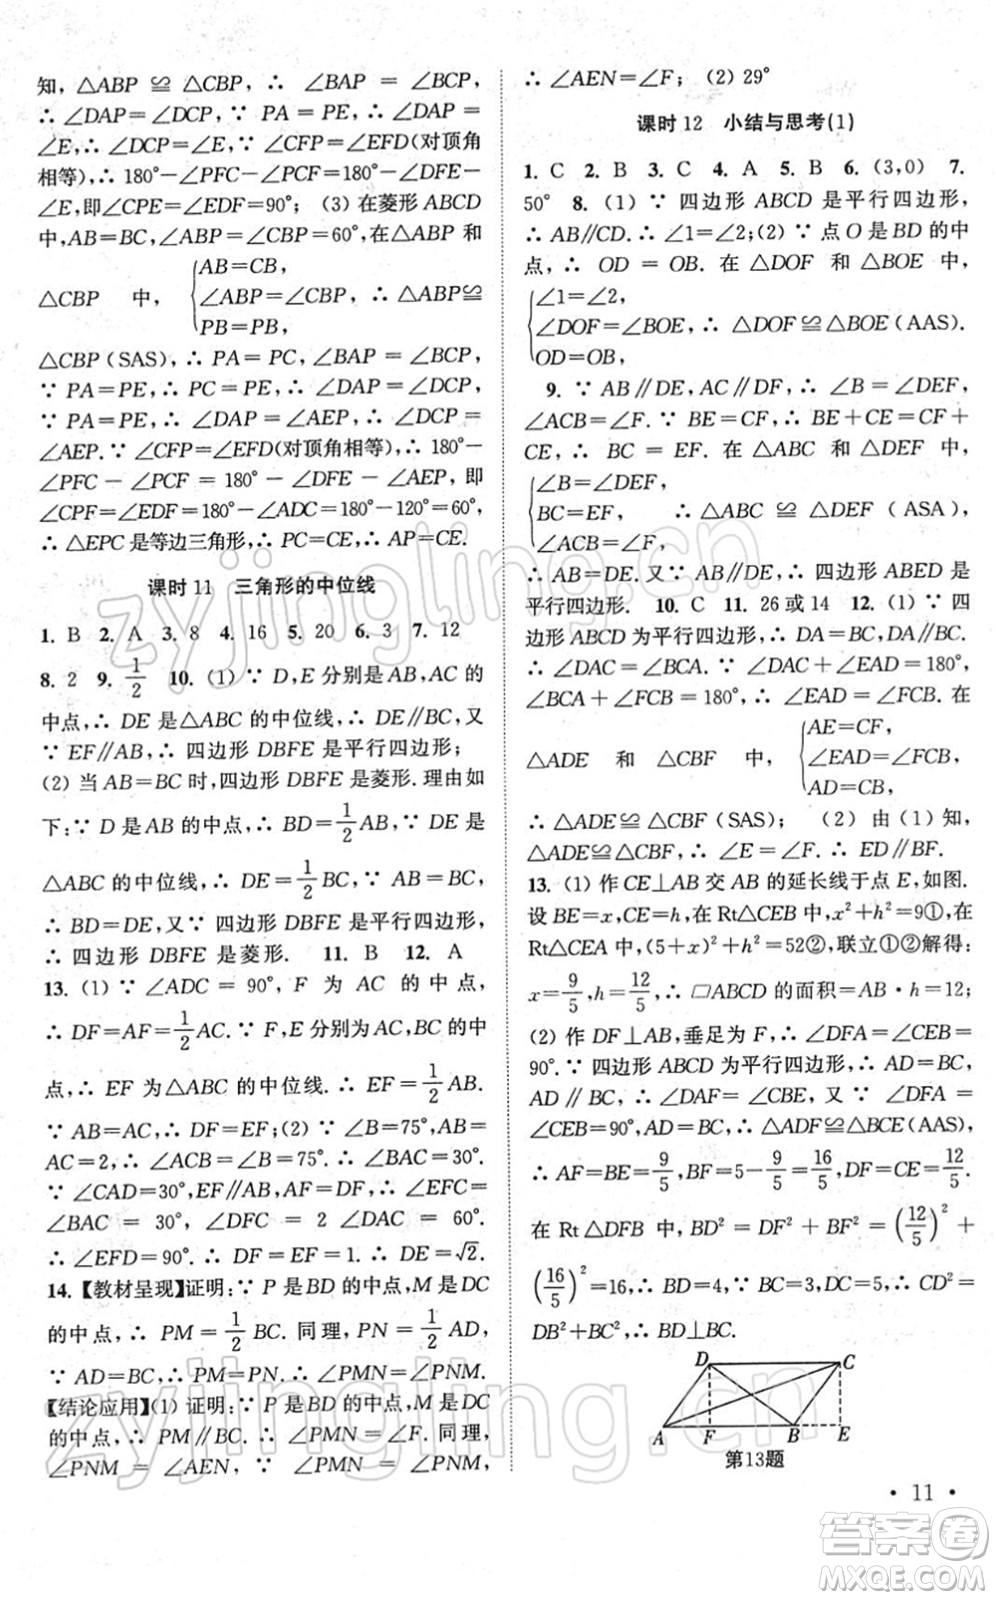 知，△ABP ≌ △CBP，∴ ∠BAP = ∠BCP，
∴ ∠DAP=∠DCP，∵ PA=PE，∴ ∠DAP=
∠E，∴ ∠DCP=∠E，∵ ∠CFP=∠EFD(对顶角
相等)，∴ 180°－∠PFC－∠PCF=180°－∠DFE－
∠E，即∠CPE=∠EDF=90°；(3) 在菱形 ABCD
中，AB=BC，∠ABP=∠CBP=60°，在△ABP 和
△CBP 中，{AB=CB，
∠ABP=∠CBP，∴ △ABP≌
PB=PB，
△CBP (SAS)，∴ PA=PC，∠BAP=∠BCP，
∵ PA=PE，∴ PC=PE，∴ ∠DAP=∠DCP，
∵ PA=PE，∴ ∠DAP=∠AEP，∴ ∠DCP=
∠AEP. ∵ ∠CFP=∠EFD(对顶角相等)，∴ 180°－
∠PFC－∠PCF=180°－∠DFE－∠AEP，即
∠CPF=∠EDF=180°－∠ADC=180°－120°=60°，
∴ △EPC 是等边三角形，∴ PC=CE，∴ AP=CE.
课时 11 三角形的中位线
1. B 2. A 3. 8 4. 16 5. 20 6. 3 7. 12
8. 2 9. 1/2 10. (1) ∵ D，E 分别是 AB，AC 的
中点，∴ DE 是△ABC 的中位线，∴ DE∥BC，又
∵ EF∥AB，∴ 四边形 DBFE 是平行四边形；
(2) 当 AB=BC 时，四边形 DBFE 是菱形. 理由如
下：∵ D 是 AB 的中点，∴ BD=1/2 AB，∵ DE 是
△ABC 的中位线，∴ DE=1/2 BC，∵ AB=BC，
∴ BD=DE，又∵ 四边形 DBFE 是平行四边形，
∴ 四边形 DBFE 是菱形. 11. B 12. A
13. (1) ∵ ∠ADC = 90°，F 为 AC 的中点，
∴ DF=AF=1/2 AC. ∵ F，E 分别为 AC，BC 的中
点，∴ EF 为△ABC 的中位线. ∴ EF=1/2 AB.
∵ AB=AC，∴ DF=EF；(2) ∵ ∠B=75°，AB=
AC=2，∴ ∠ACB=∠B=75°. ∴ ∠BAC=30°.
∵ ∠CAD=30°，EF∥AB，AF=DF，∴ ∠EFC=
∠BAC = 30°，∠DFC = 2 ∠DAC = 60°.
∴ ∠EFD=90°. ∴ DF=EF=1. ∴ DE=√2.
14.【教材呈现】证明：∵ P 是 BD 的中点，M 是 DC
的中点，∴ PM=1/2 BC. 同理，PN=1/2 AD，
∵ AD=BC，∴ PM=PN. ∴ ∠PMN=∠PNM.
【结论应用】(1) 证明：∵ P 是 BD 的中点，M 是 DC
的中点，∴ PM∥BC，∴ ∠PMN=∠F. 同理，
∠PNM = ∠AEN，∵ ∠PMN = ∠PNM，
∴ ∠AEN=∠F；(2) 29°
课时 12 小结与思考(1)
1. C 2. B 3. C 4. A 5. B 6. (3,0) 7.
50° 8. (1) ∵ 四边形 ABCD 是平行四边形，
∴ AB∥CD. ∴ ∠1=∠2；(2) ∵ 点 O 是 BD 的中
点，∴ OD = OB. 在 △DOF 和 △BOE 中，
{∠1=∠2，
∠DOF=∠BOE，∴ △DOF≌△BOE (AAS).
OD=OB，
9. ∵ AB∥DE，AC∥DF，∴ ∠B=∠DEF，
∠ACB=∠F. ∵ BE=CF，∴ BE+CE=CF+
CE，∴ BC = EF. 在 △ABC 和 △DEF 中，
{∠B=∠DEF，
BC=EF， ∴ △ABC ≌ △DEF (ASA)，
∠ACB=∠F，
∴ AB=DE. ∵ AB∥DE，∴ 四边形 ABED 是
平行四边形. 10. C 11. 26 或 14 12. (1) ∵ 四
边形 ABCD 为平行四边形，∴ DA=BC，DA∥BC.
∴ ∠DAC=∠BCA. ∵ ∠DAC+∠EAD=180°，
∠BCA+∠FCB=180°，∴ ∠EAD=∠FCB. 在
△ADE 和 △CBF 中，{AE=CF，
∠EAD=∠FCB，
AD=CB，
∴ △ADE≌△CBF (SAS)；(2) 由 (1) 知，
△ADE≌△CBF，∴ ∠E=∠F. ∴ ED∥BF.
13. (1) 作 CE⊥AB 交 AB 的延长线于点 E，如图.
设 BE=x，CE=h，在 Rt△CEB 中，x²+h²=9①，在
Rt△CEA 中，(5+x)²+h²=52②，联立①②解得：
x=9/5，h=12/5，∴ ▱ABCD 的面积=AB·h=12；
(2) 作 DF⊥AB，垂足为 F，∴ ∠DFA=∠CEB=
90°. ∵ 四边形 ABCD 为平行四边形，∴ AD=BC，
AD∥BC，∴ ∠DAF=∠CBE，又∵ ∠DFA=
∠CEB=90°，AD=BC，∴ △ADF≌△BCE(AAS)，
∴ AF=BE=9/5，BF=5－9/5=16/5，DF=CE=12/5.
在 Rt△DFB 中，BD²=DF²+BF²=(12/5)²+
(16/5)²=16，∴ BD=4，∵ BC=3，DC=5，∴ CD²=
DB²+BC²，∴ BD⊥BC.
D C
A F B E
第13题
· 11 ·
zyjingling.cn
zyjingling.cn
答案圈
MXQE.COM